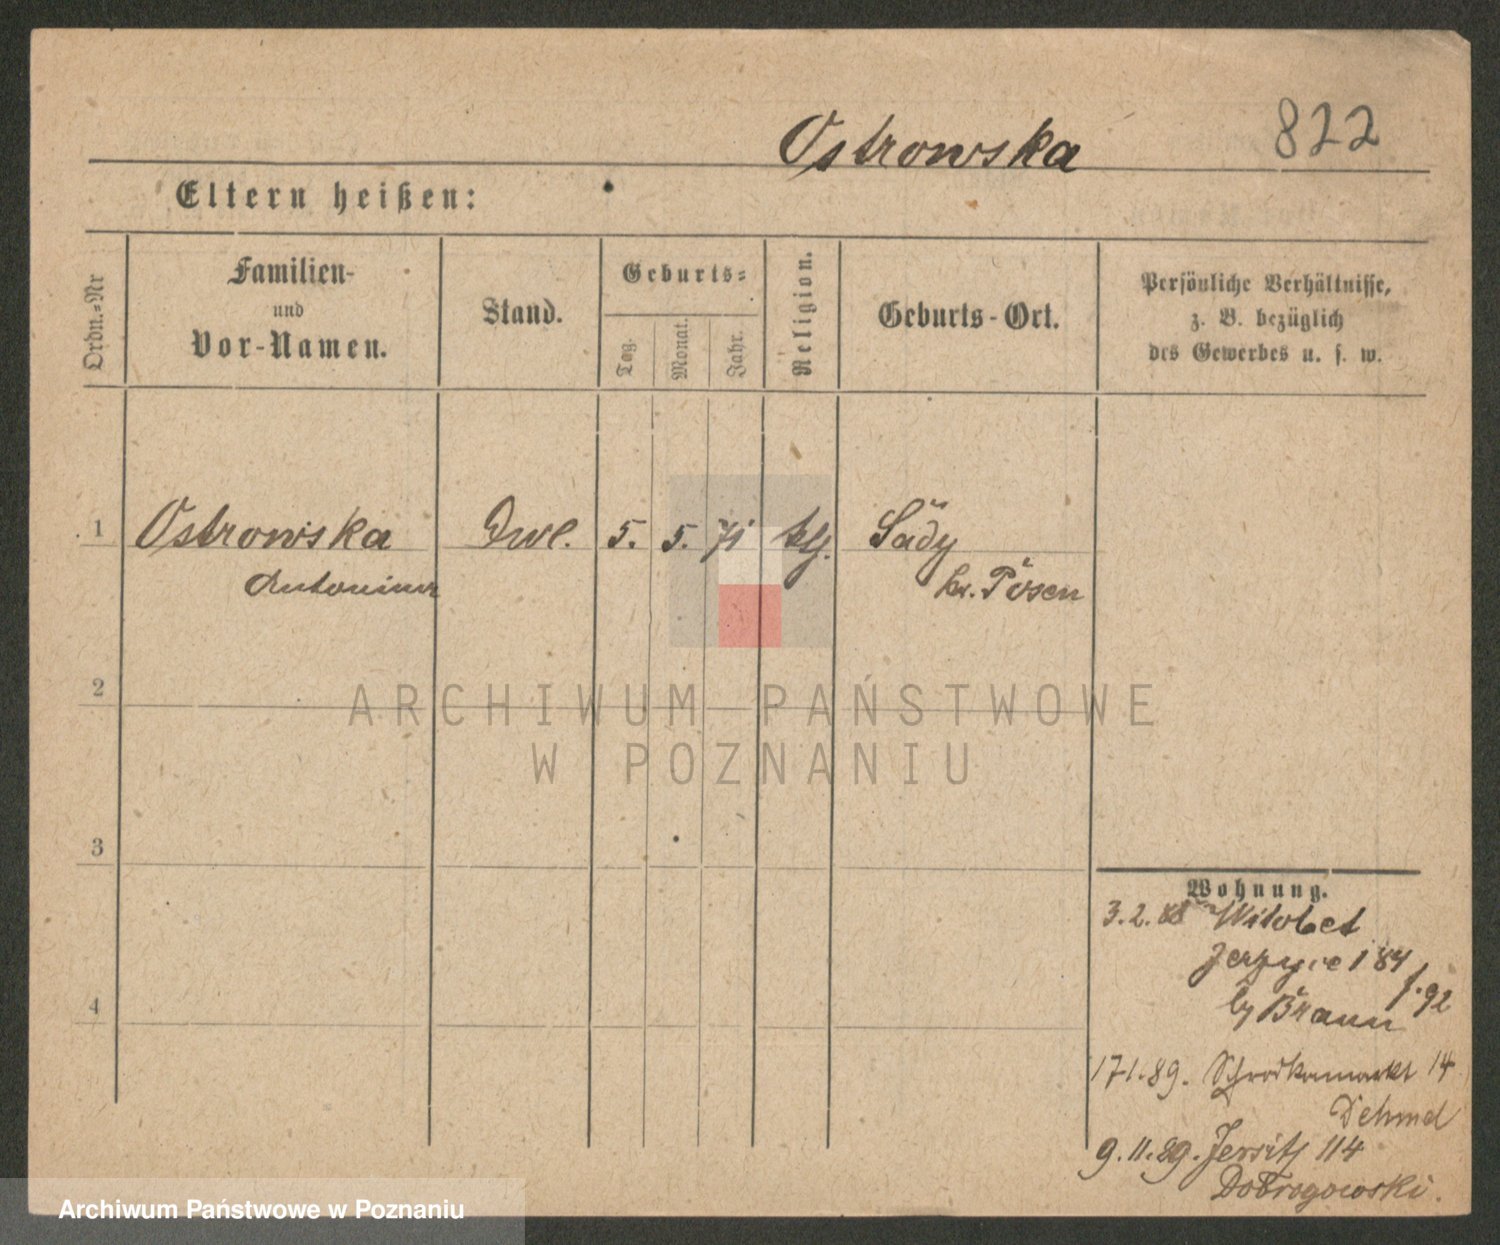 Ostrowska
822
Eltern heißen:
Ordn.=Nr
Familien-
und
Vor-Namen.
Stand.
Geburts=
Tag.
Monat.
Jahr.
Religion.
Geburts-Ort.
Persönliche Verhältnisse,
z. B. bezüglich
des Gewerbes u. s. w.
1
Ostrowska
Antonina
5. 5. 71
Sady
Kr. Posen
2
ARCHIWUM PAŃSTWOWE
W POZNANIU
3
Wohnung.
3.2.88
184
Braun
4
17.1.89. Schrodkamarkt 14
9.11.89. Jersitz 114
Dobrogowski.
Archiwum Państwowe w Poznaniu